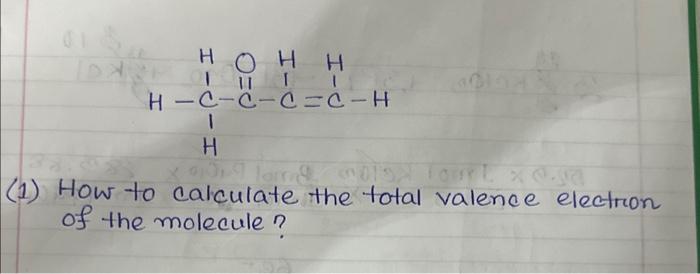 H O H H
H-C-C-C=C-H
H
(1) How to calculate the total valence electron
of the molecule?